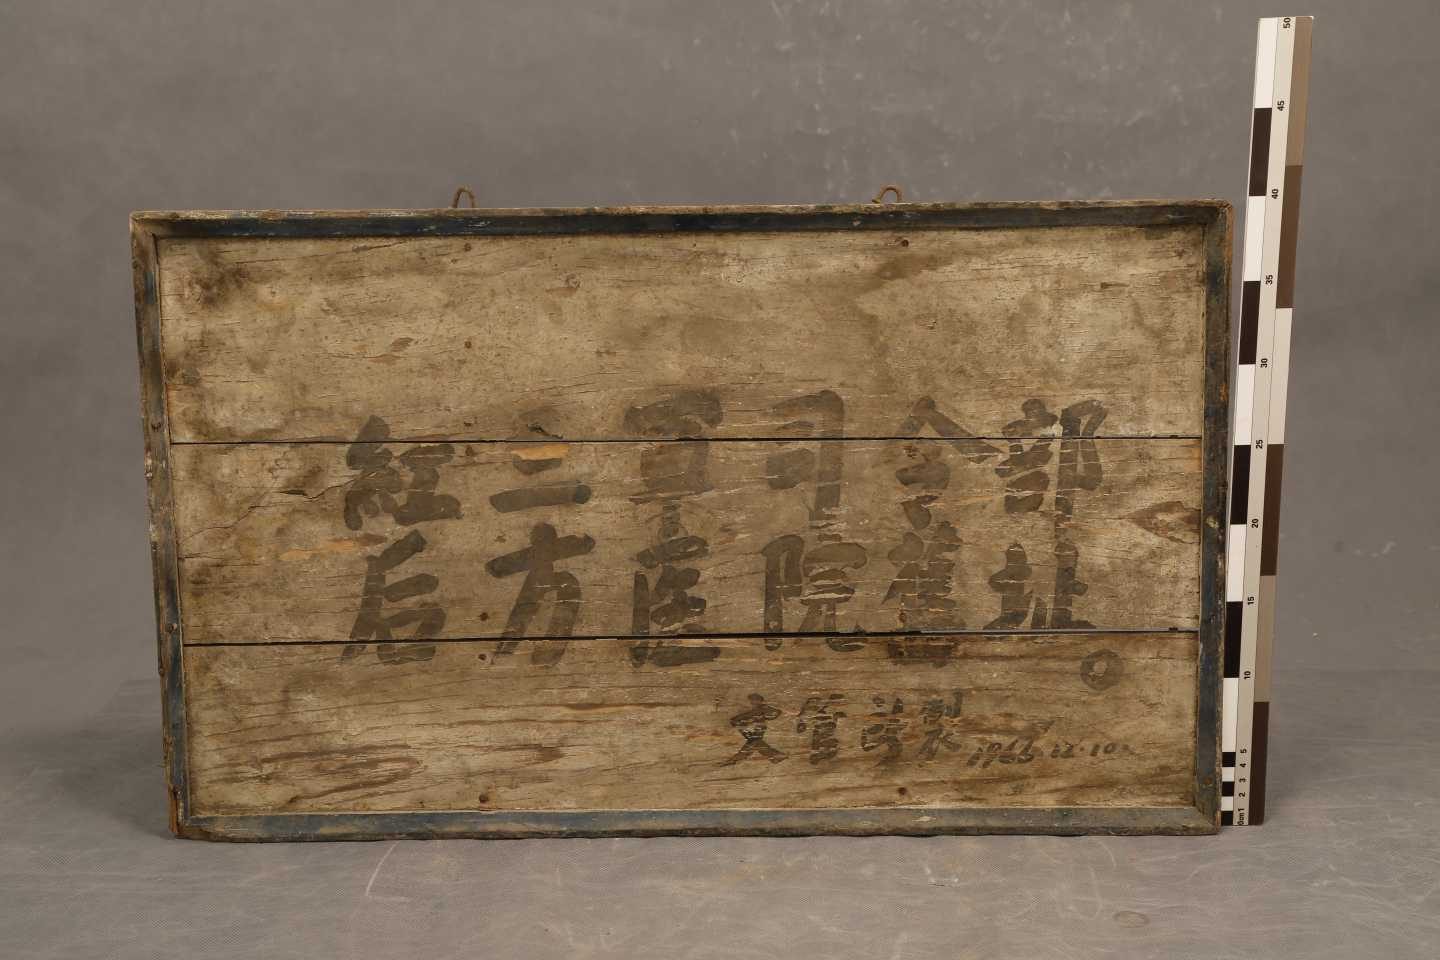 紅三軍司令部
后方医院舊址。
文管所製 1966.12.10.
50
45
40
35
30
25
20
15
10
5
4
3
2
0cm1